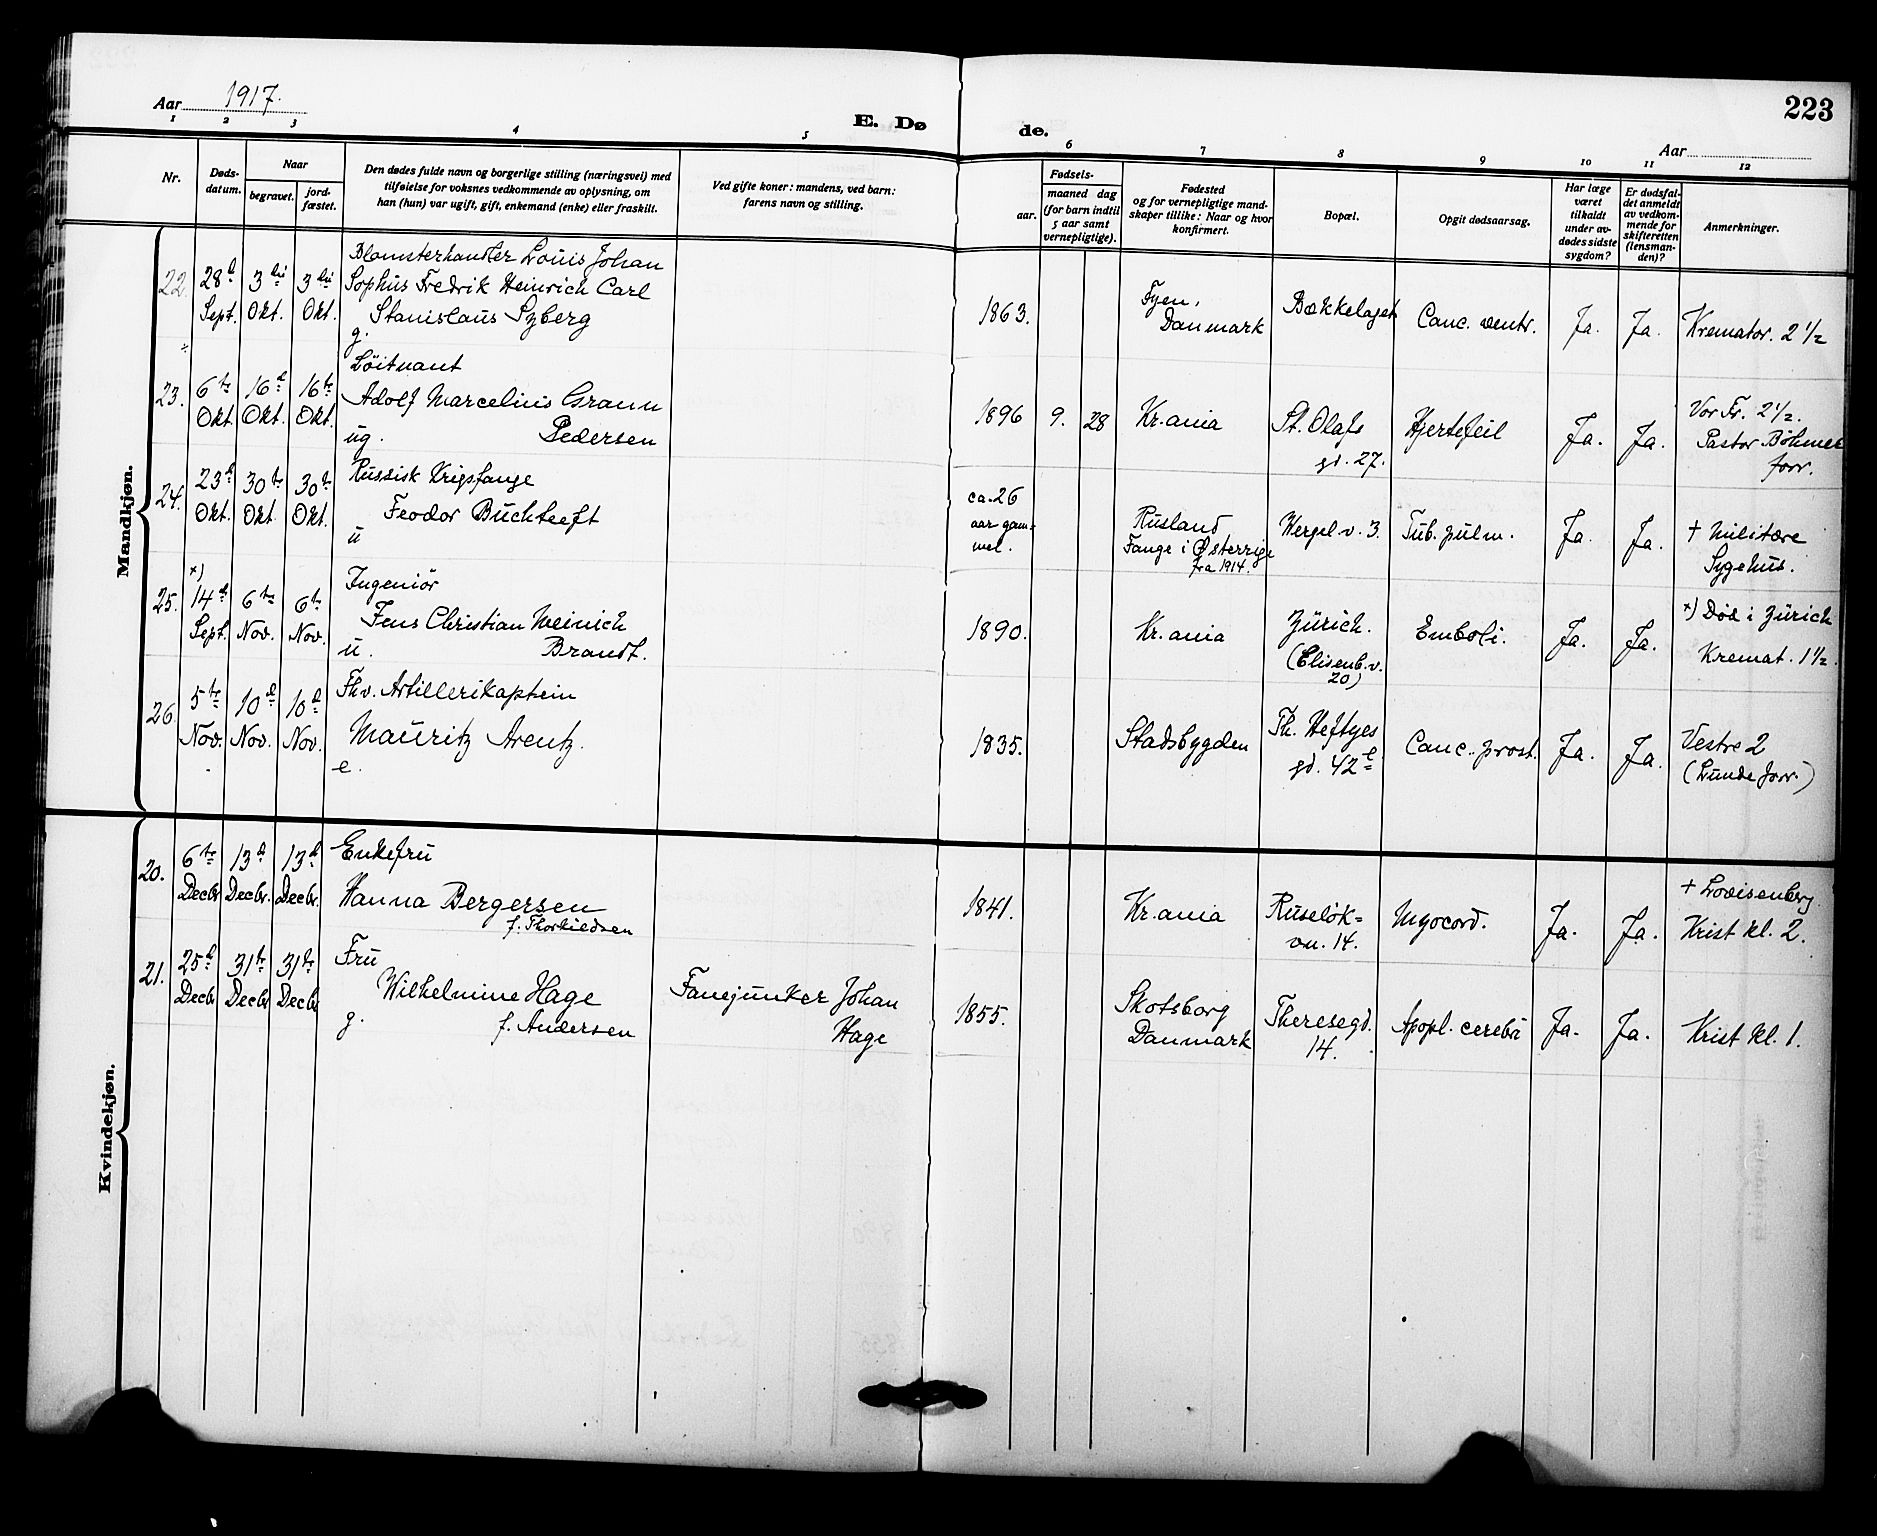 223
Aar 1917.
E. Døde.
Aar
1 2 3 4 5 6 7 8 9 10 11 12
Nr.
Døds-
datum.
Naar
begravet.
jord-
fæstet.
Den dødes fulde navn og borgerlige stilling (næringsvei) med
tilføielse for voksnes vedkommende av oplysning, om
han (hun) var ugift, gift, enkemand (enke) eller fraskilt.
Ved gifte koner: mandens, ved barn:
farens navn og stilling.
Fødsels-
aar.
maaned dag
(for barn indtil
5 aar samt
vernepligtige).
Fødested
og for vernepligtige mand-
skaper tillike: Naar og hvor
konfirmert.
Bopæl.
Opgit dødsaarsag.
Har læge
været
tilkaldt
under av-
dødes sidste
sygdom?
Er dødsfal-
det anmeldt
av vedkom-
mende for
skifteretten
(lensman-
den)?
Anmerkninger.
Mandkjøn.
22. 28d Sept. 3die Okt. 3die Okt.
Blomsterhandler Louis Johan
Sophus Fredrik Heinrich Carl
Stanislaus Syberg
g.
1863.
Fyen,
Danmark
Bækkelaget
Canc. ventr.
Ja. Ja.
Kremator. 2 1/2
23. 6te Okt. 16d Okt. 16te Okt.
Løitnant
Adolf Marcelius Grann
ug. Pedersen
1896 9. 28
Kr.ania
St. Olafs
gd. 27.
Hjertefeil
Ja. Ja.
Vor Fr. 2 1/2.
Pastor Böhmer
forr.
24. 23d Okt. 30te Okt. 30te Okt.
Russisk Krigsfange
Feodor Buchteeft
u
ca. 26
aar gam-
mel.
Rusland
Fange i Østerrige
fra 1914.
Hergel v. 3.
Tub. pulm.
Ja. Ja.
+ Militære
Sygehus.
25. x) 14d Sept. 6te Nov. 6te Nov.
Ingeniör
Jens Christian Meinich
u. Brandt.
1890.
Kr.ania
Zürich.
(Elisenb.v.
20)
Emboli.
Ja. Ja.
x) Död i Zürich
Kremat. 1 1/2.
26. 5te Nov. 10d Nov. 10d Nov.
Fhv. Artillerikaptein
Mauritz Arentz.
e.
1835.
Stadsbygden
Th. Heftyes
gd. 42
Canc. prost.
Ja. Ja.
Vestre 2
(Lunde forr.)
Kvindekjøn.
20. 6te Decbr. 13d Decbr. 13d Decbr.
Enkefru
Hanna Bergersen
f. Thorkildsen
1841.
Kr.ania
Ruselök-
vn. 14.
Myocord.
Ja. Ja.
+ Lovisenberg
Krist kl. 2.
21. 25d Decbr 31te Decbr 31te Decbr
Fru
Wilhelmine Hage
g. f. Andersen
Fanejunker Johan
Hage
1855.
Skotsborg
Danmark
Theresegd.
14.
Apopl. cerebri
Ja. Ja.
Krist kl. 1.